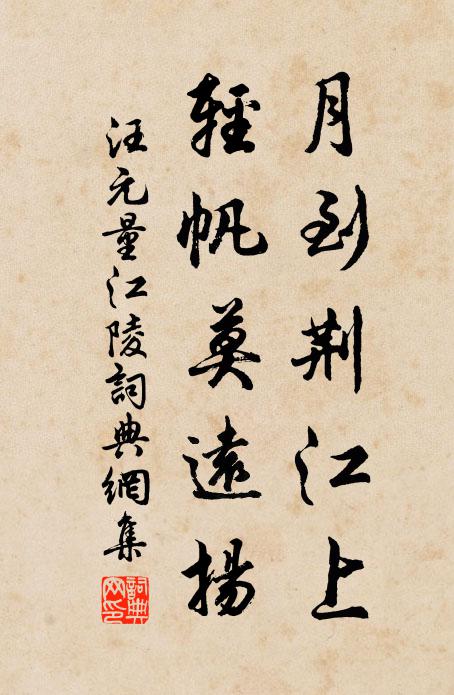 月到荆江上
輕帆莫遠揚
汪元量江陵詞典網集
詞典
网印